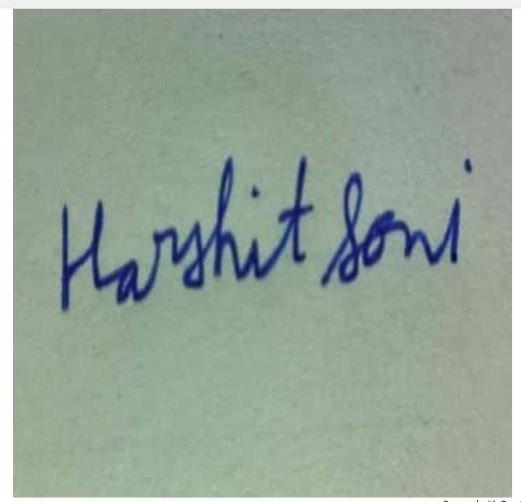 Harshit Soni